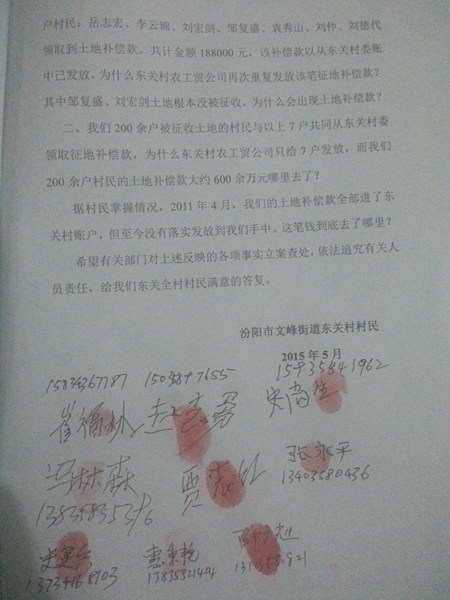 户村民：岳志宏、李云锦、刘宏剑、邹复盛、袁秀山、刘仲、刘德代
领取到土地补偿款，共计金额188000元，该补偿款以从东关村委账
中已发放，为什么东关村农工贸公司再次重复发放该笔征地补偿款？
其中邹复盛、刘宏剑土地根本没被征收，为什么会出现土地补偿款？
二、我们200余户被征收土地的村民与以上7户共同从东关村委
领取征地补偿款，为什么东关村农工贸公司只给7户发放，而我们
200余户村民的土地补偿款大约600余万元哪里去了？
据村民掌握情况，2011年4月，我们的土地补偿款全部进了东
关村账户，但至今没有落实发放到我们手中。这笔钱到底去了哪里？
希望有关部门对上述反映的各项事实立案查处，依法追究有关人
员责任，给我们东关全村村民满意的答复。
汾阳市文峰街道东关村村民
2015年5月
15935841962
张永平
13403580436
冯林森